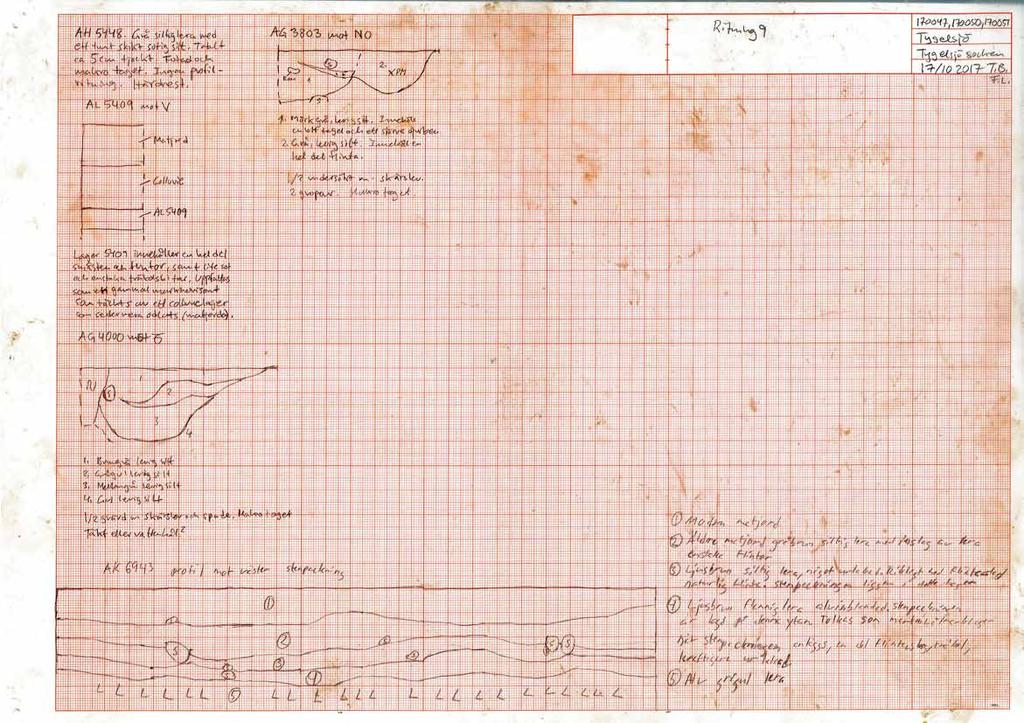 AH 5448. Grå siltig lera med
ett tunt skikt sotig silt. Totalt
ca 5cm tjockt Fotad och
makro taget. Ingen profil-
ritning. Härdrest.
AL 5409 mot V
Matjord
Colluvie
AL5409
Lager 5409 innehåller en hel del
och flintor, samt lite sot
och enstaka träkolsbitar. Uppfattas
som ett gammal
som täckts av ett colluvielager
som sedermera odlats (matjorden).
AG 4000 mot Ö
N
1
2
3
4
5
1. Brungrå lerig silt
2. Grågul lerig silt
3. Mellangrå lerig silt
4. Gul lerig silt
1/2 grävd m skärslev och spade. Makro taget
Täkt eller vattenhål?
AG 3803 mot NO
1
2.
XPM
1. Mörkgrå, lerig silt. Innehöll
en bit tegel och ett större djurben
2. Grå, lerig silt. Innehöll en
hel del flinta.
1/2 undersökt m. skärslev.
2 gropar. Makro taget.
Ritning 9
170047, 170050, 170051
Tygelsjö
Tygelsjö socken
17/10 2017 T.B.
F.L.
AK 6943 profil mot väster stenpackning
1
2
3
4
5
L L L L L L L L L L L L L L L L L L L
① Modern matjord
② Äldre matjord gråbrun siltig lera med inslag av lera
enstaka flintor
③ Ljusbrun siltig lera, något
naturlig flinta stenpackningen ligger i detta lager
④ Ljusbrun flammig lera alvinblandad. stenpackningen
är lagd på denna ytan Tolkas som
när stenpackningen anlades, en del flinta träkol,
kraftigare urlakad
⑤ Alv grågul lera